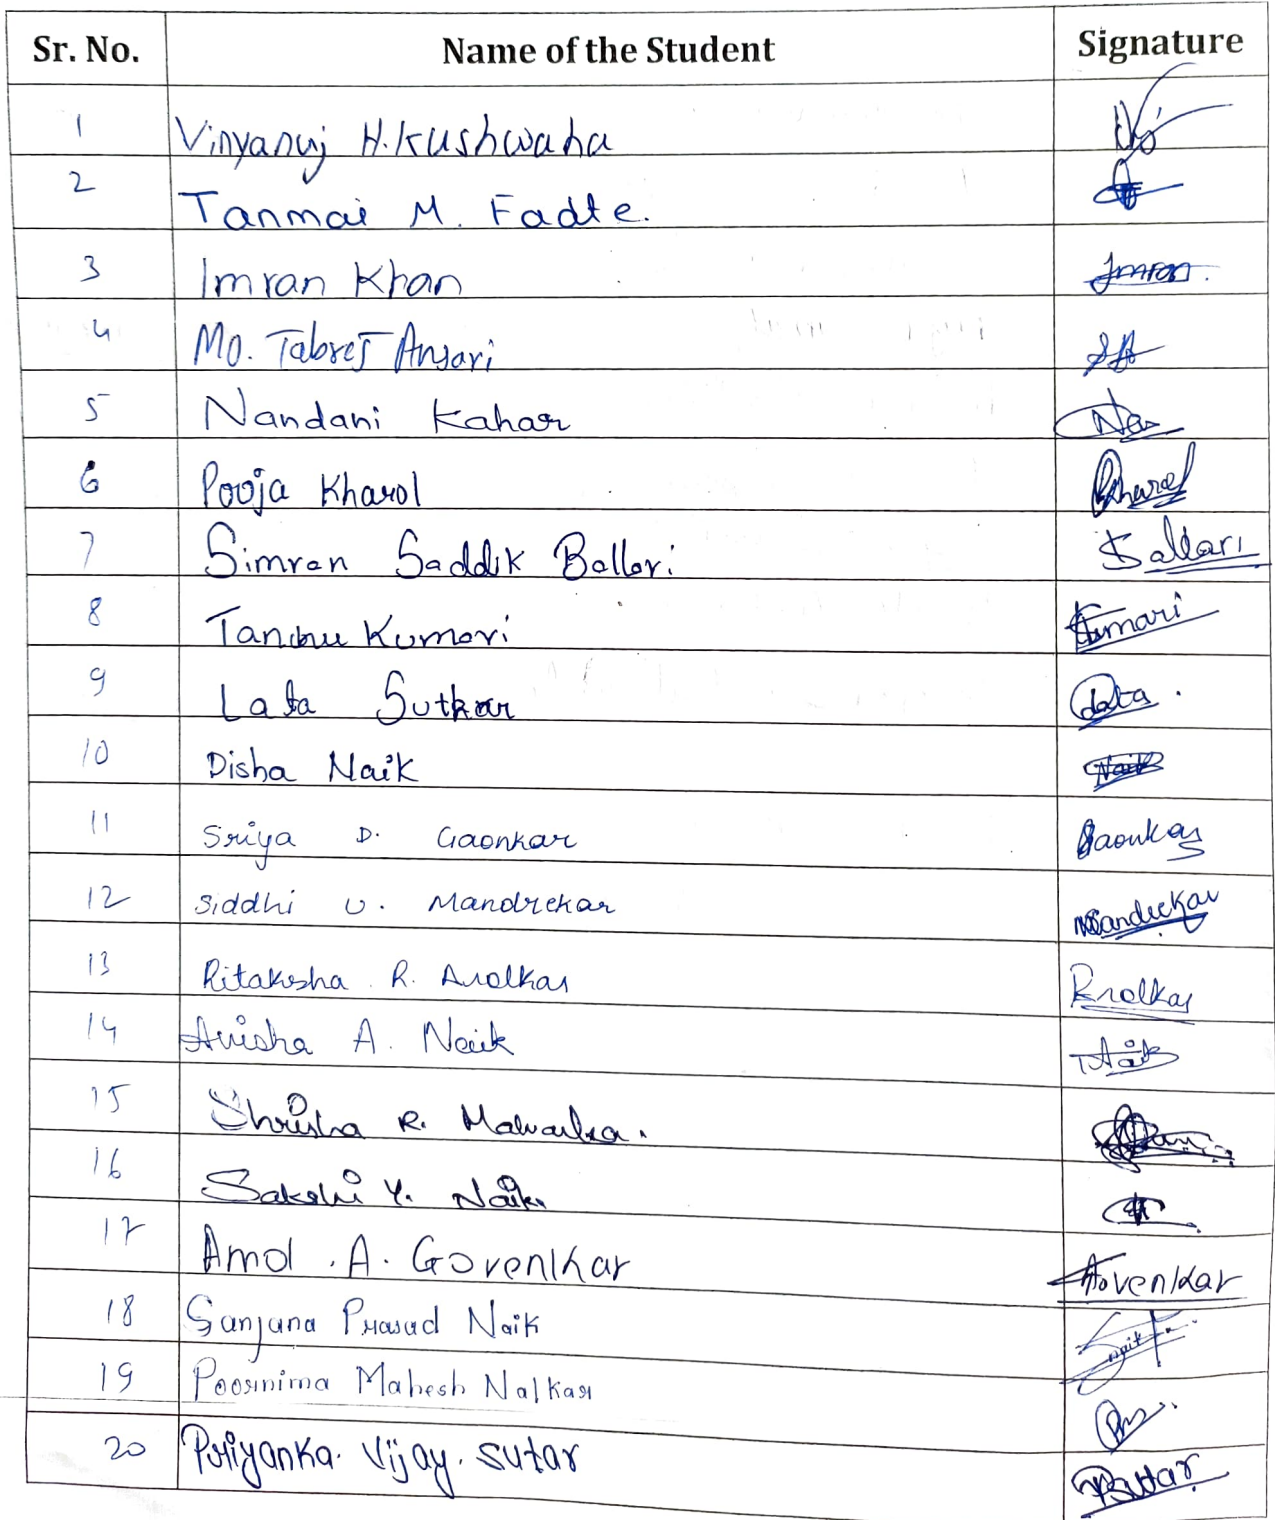 Sr. No. Name of the Student Signature
1 Vinyanuj H. Kushwaha
2 Tanmai M. Fadte.
3 Imran Khan Imran.
4 Mo. Tabrej Ansari SA
5 Nandani Kahar Na
6 Pooja Kharol Kharol
7 Simran Saddik Ballari SBallari
8 Kumari Kumari
9 Lata Sutkar Lata.
10 Disha Naik Naik
11 Sriya D. Gaonkar Gaonkar
12 Siddhi U. Mandrekar Mandrekar
13 Ritaksha R. Arolkar Rrolkar
14 Avisha A. Naik Naik
15 Shrisha R.
16 Sakshi Y. Naik.
17 Amol . A. Govenkar Govenkar
18 Sanjana Prasad Naik
19 Poornima Mahesh Nalkar
20 Priyanka. Vijay. Sutar PSutar